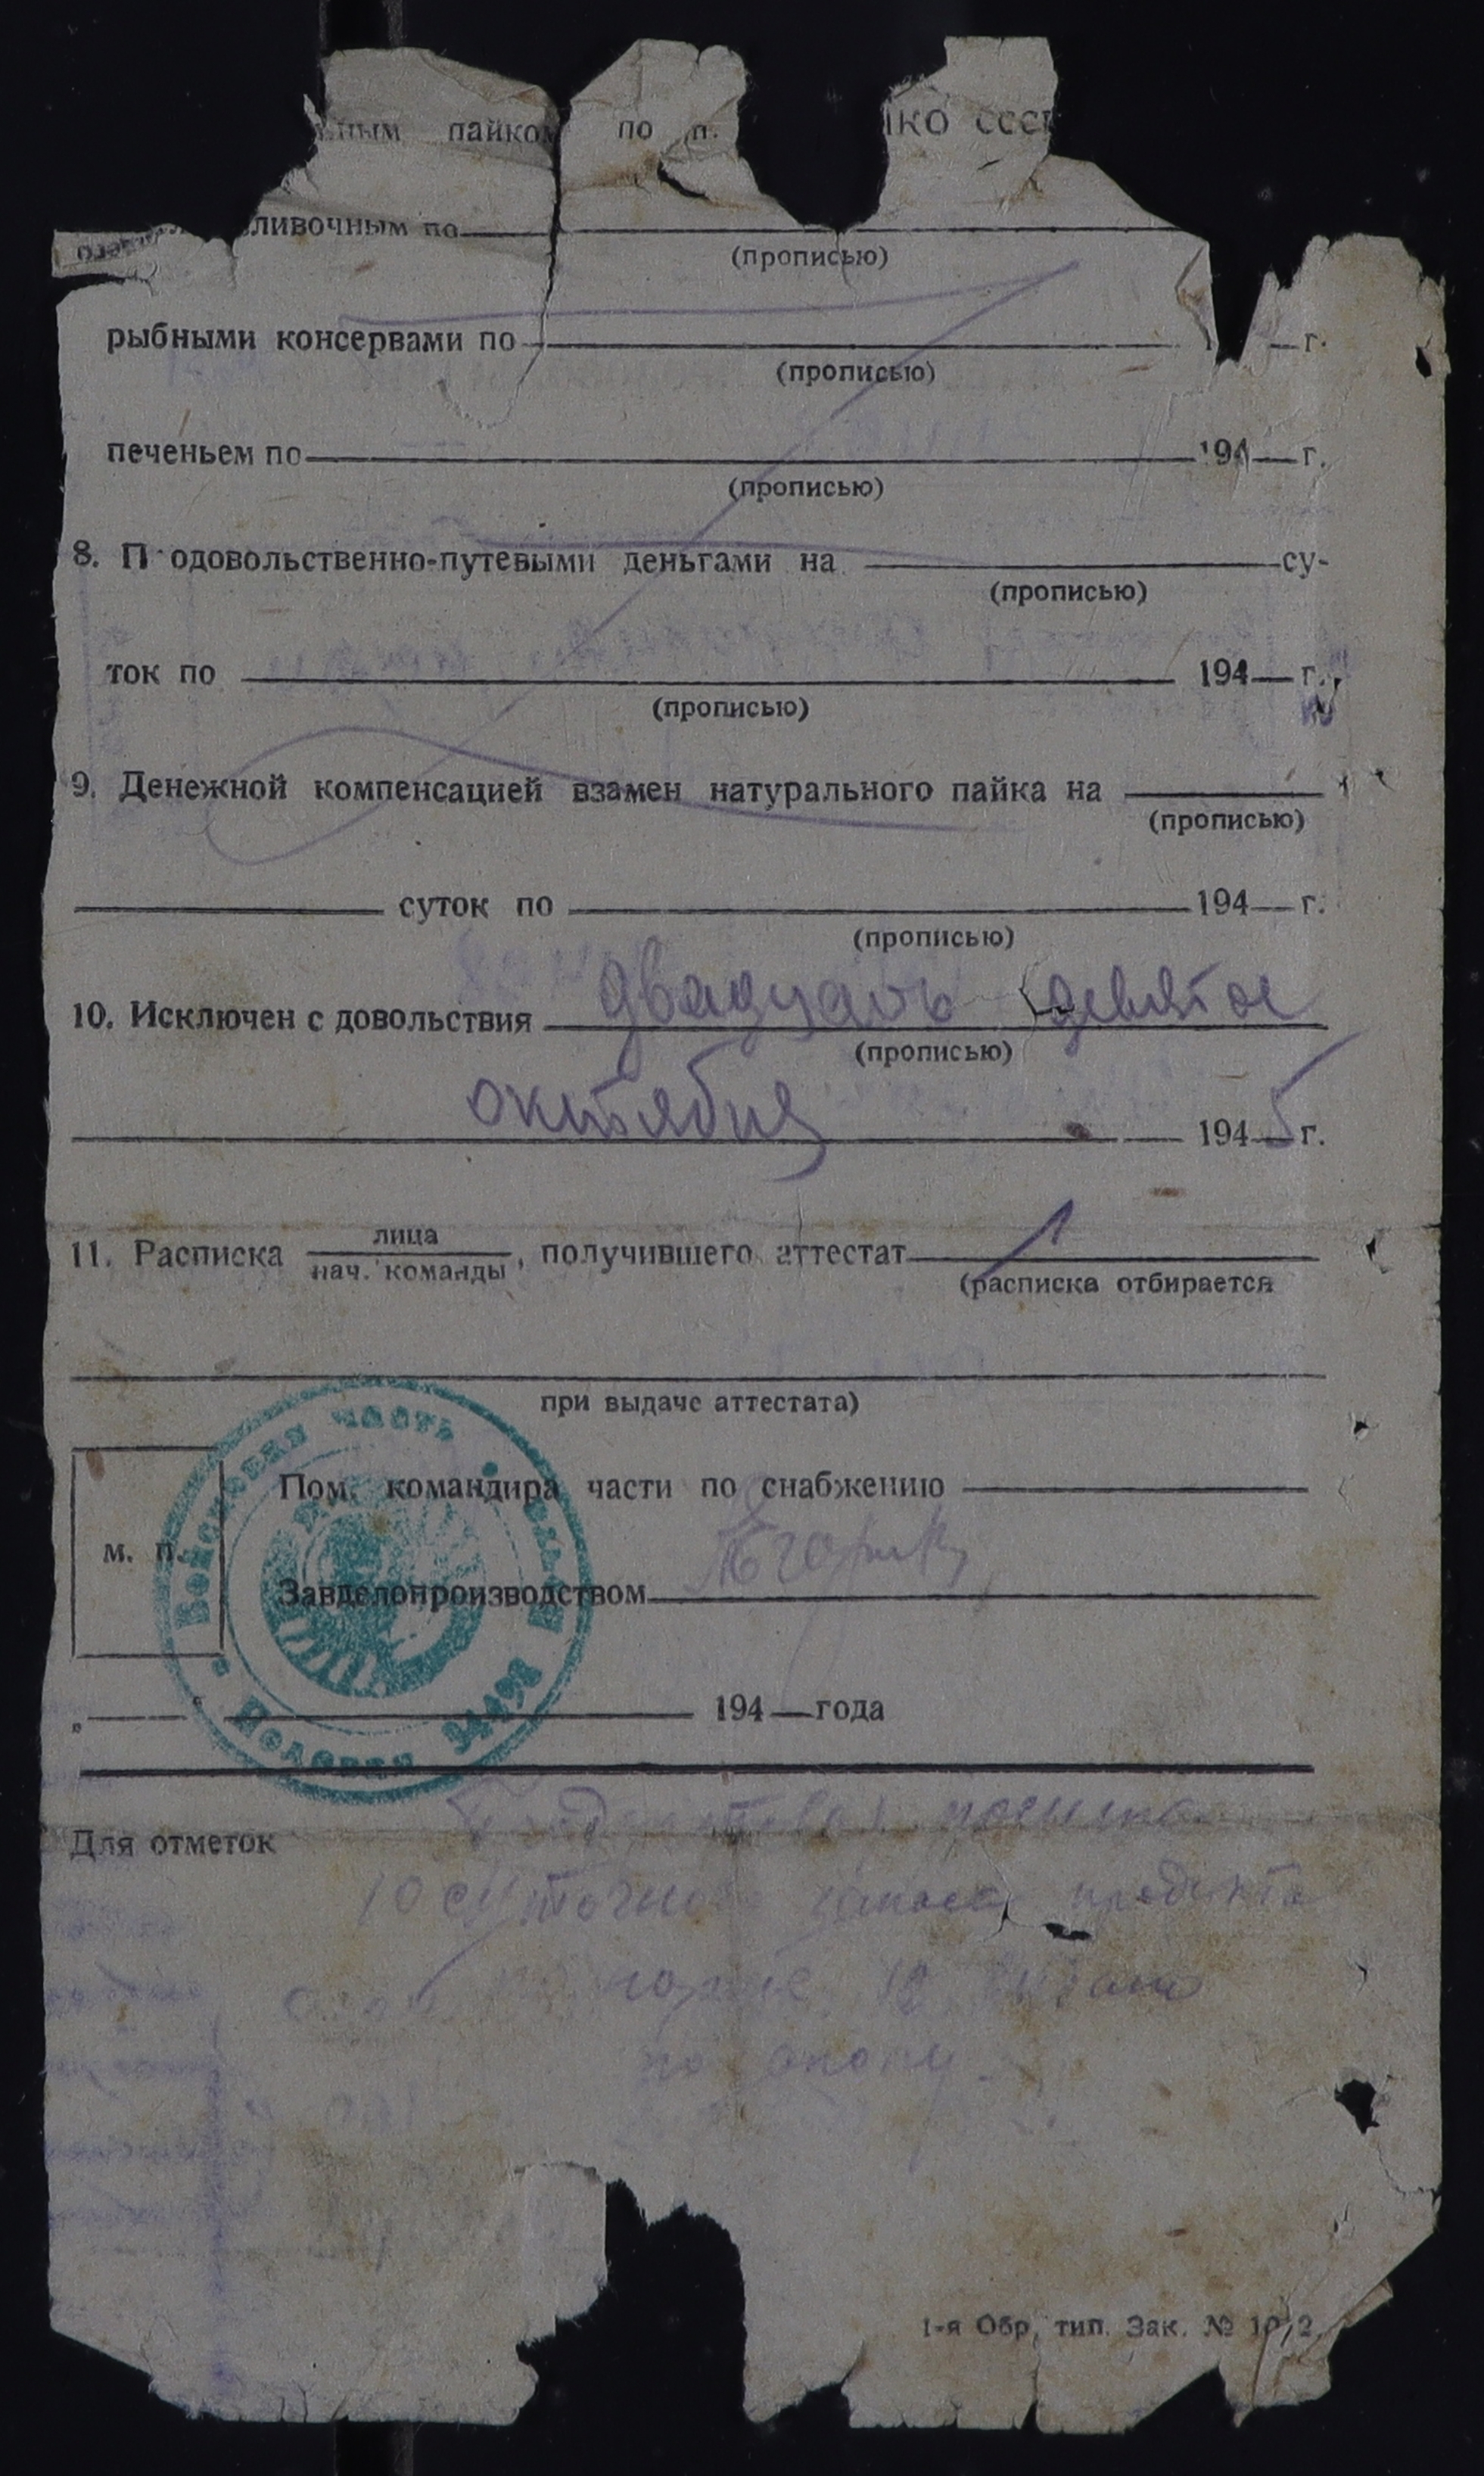 пайком по п.
ливочным по
(прописью)
рыбными консервами по г.
(прописью)
печеньем по 194 г.
(прописью)
8. П одовольственно-путевыми деньгами на су-
(прописью)
ток по 194 г.
(прописью)
9. Денежной компенсацией взамен натурального пайка на
(прописью)
суток по 194 г.
(прописью)
10. Исключен с довольствия двадцать девятое
(прописью)
октября 1945 г.
11. Расписка лица / нач. команды, получившего аттестат
(расписка отбирается
при выдаче аттестата)
Войсковая часть
Полевая
м. п.
Пом. командира части по снабжению
Завделопроизводством
„ “ 194 года
Для отметок
10 суточного продукта
по норме выдано
по
1-я Обр. тип. Зак. №